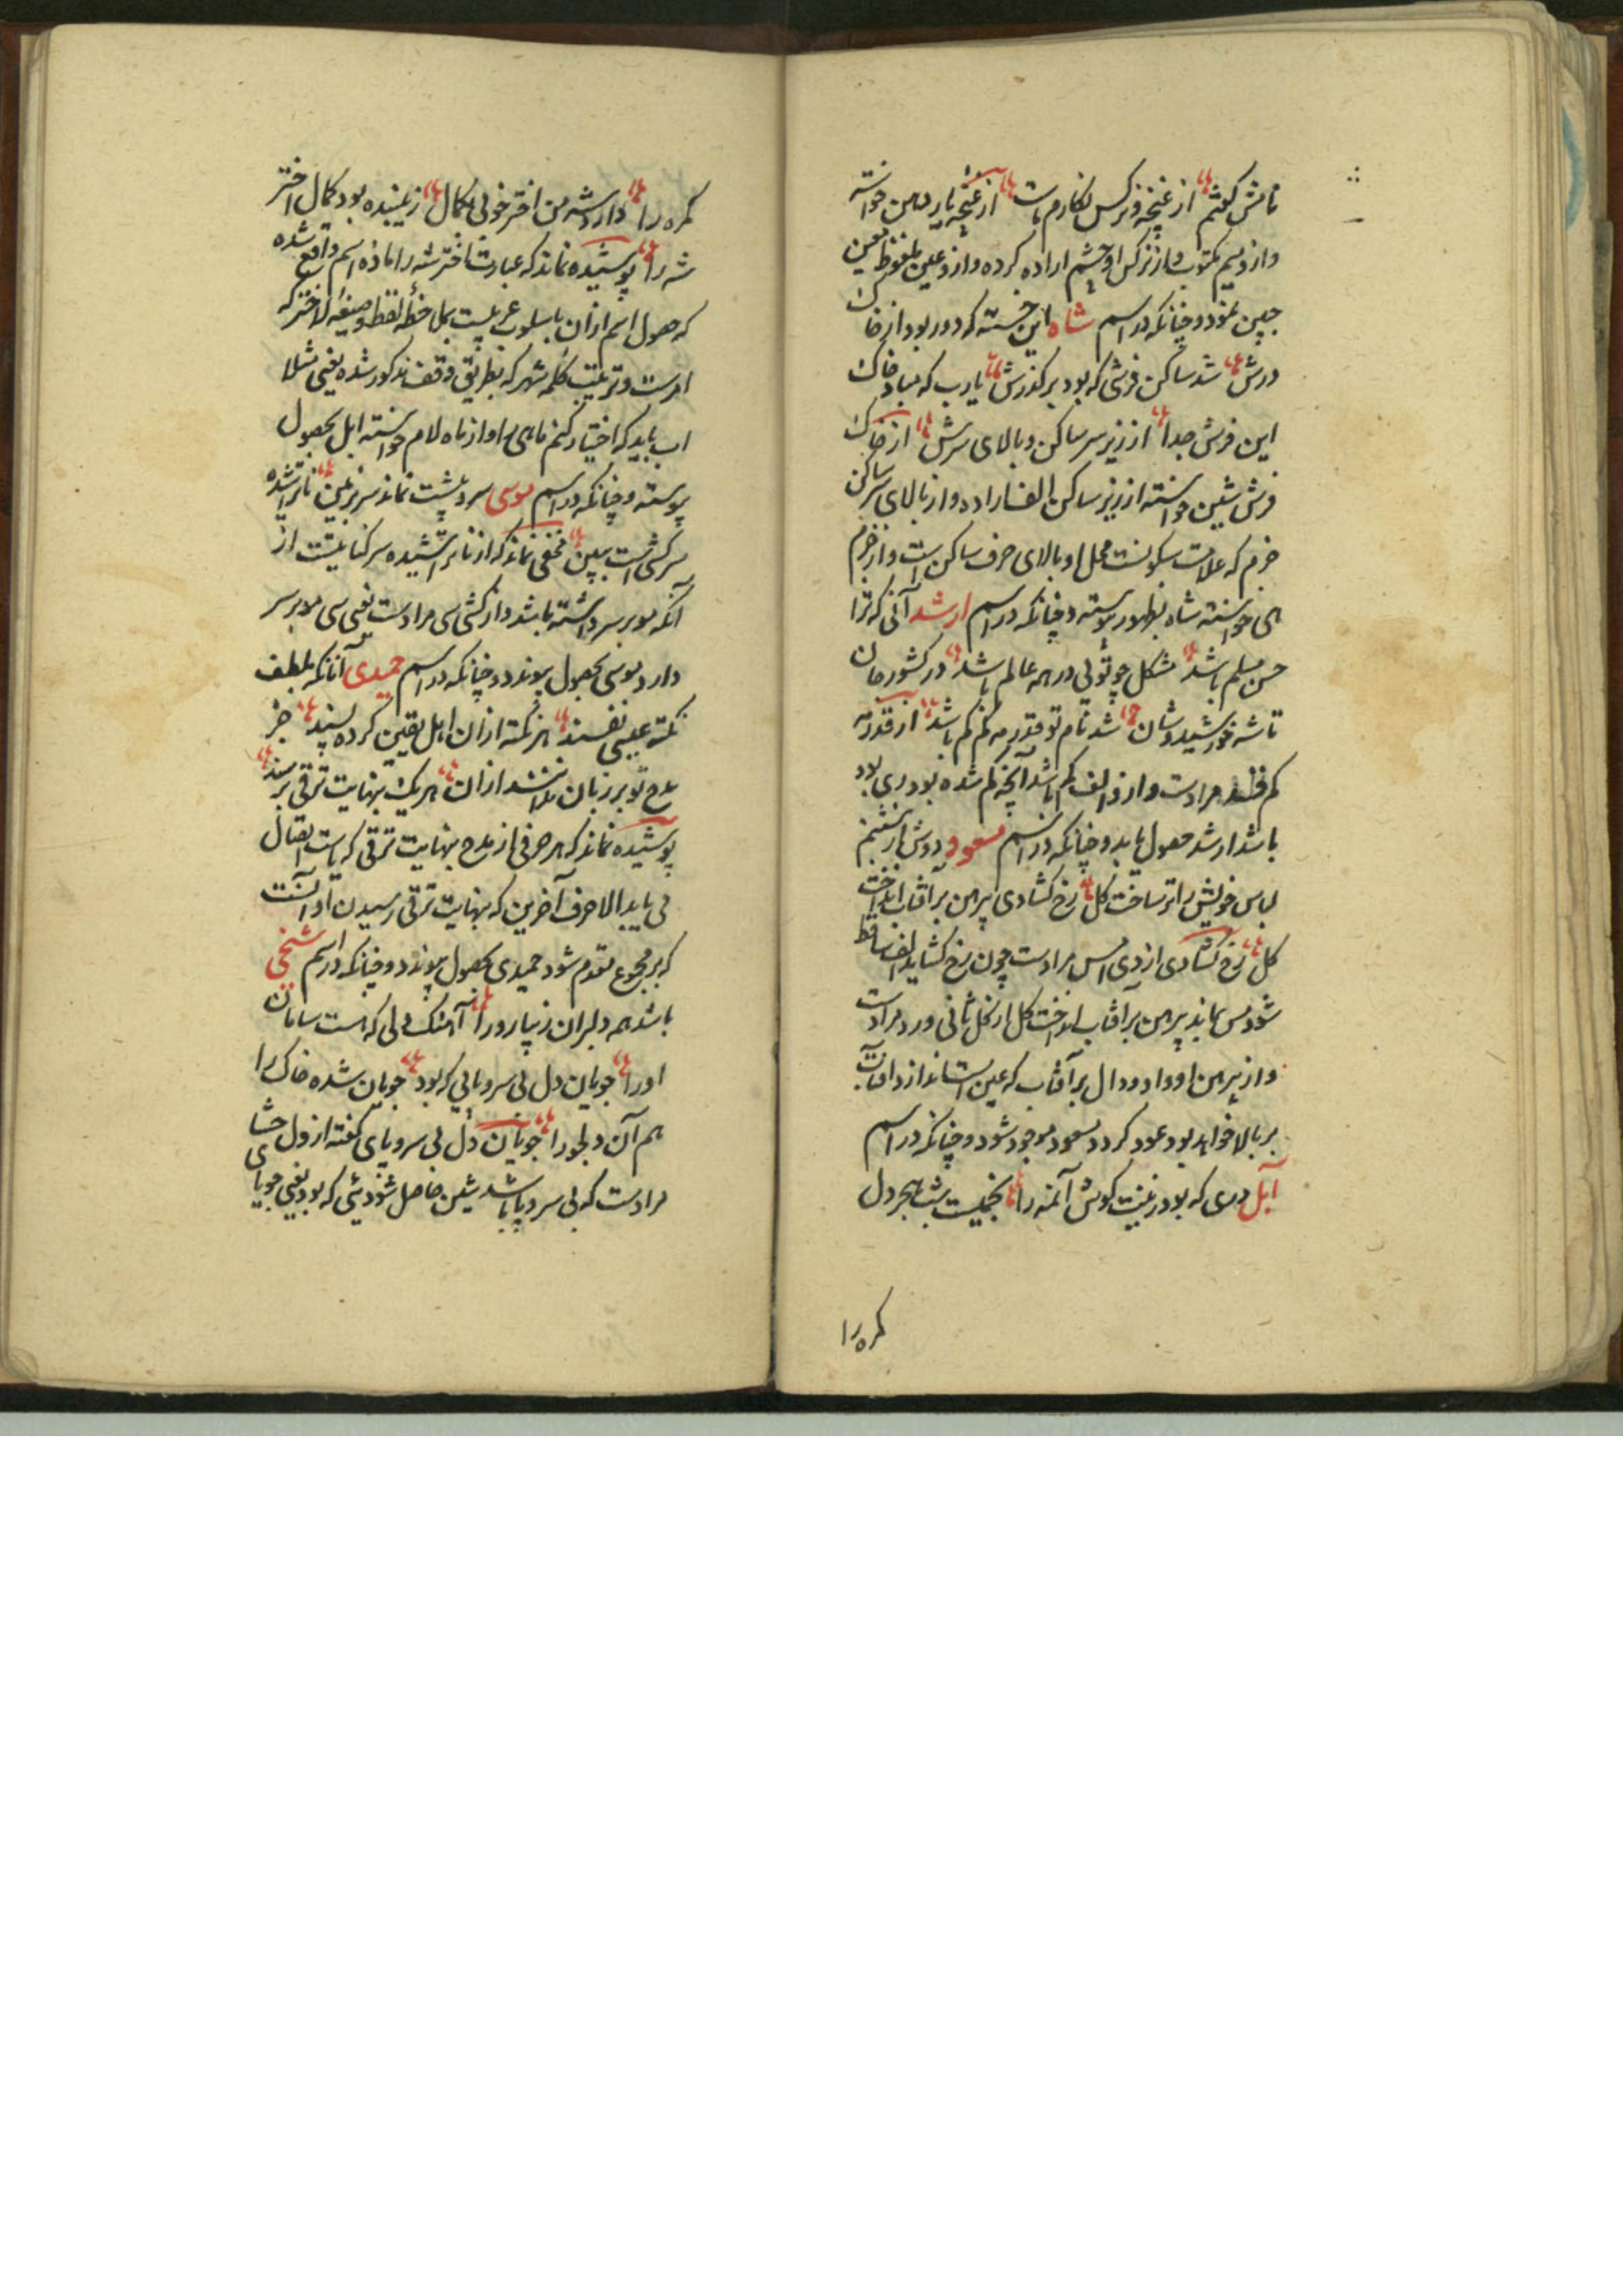 نامش گفتم از غنچه و نرگس نگارم است از غنچه یار دهن خواسته
وازو میم مکتوب و از نرگس او چشم اراده کرده وازو عین ملفوظ
چنین نمود و چنانکه در اسم شاه این خسته که دور بود از خاک
درش شد ساکن فرشی که بود بر گذرش یارب که مباد خاک
این فرش جدا از زیر سر ساکن و بالای سرش از خاک
فرش شین خواسته از زیر ساکن الف اراده و از بالای سر ساکن
جزم که علامت سکونست محل او بالای حرف ساکن است و از جزم
های خواسته شاه بظهور پیوسته و چنانکه در اسم ارشد آنی که ترا
حسن مسلم باشد مشکل چو توئی در همه عالم باشد در کشور جان
تا شه خورشیدوشان شد نام تو قدر مه کم کم باشد از قدر مه
کم قمر مرادست و از الف کم باشد آنچه کم شده بود ری بود
باشد ارشد حصول یابد و چنانکه در اسم مسعود دوش از شبنم
لباس خویش را تر ساخت گل رخ گشادی پیرهن بر آفتاب انداخت
گل رخ گشادی از دی امس مرادست چون رخ گشاید الف ساقط
شود مس بماند پیرهن بر آفتاب انداخت گل از گل ثانی ورد مرادست
و از پیرهن او واو و دال بر آفتاب که عین است اندازد آفتاب
بر بالا خواهد بود عود گردد مسعود موجود شود و چنانکه در اسم
آبل دری که بود زینت گوش آن مه را نجمیست شب هجر دل
کمره را
کمره را دارد شه من اختر خوبی بکمال زیبنده بود کمال اختر
شه را پوشیده نماند که عبارت اختر شه را ماده اسم واقع شده
که حصول اسم ازان باسلوب عربیست بملاحظه لفظ و صیغه اختر که
امرست و ترتیب کلمه شهر که بطریق وقف مذکور شده یعنی مثلا
اب باید که اختیار کنم ماهی را و از ماه لام خواسته ابل بحصول
پیوسته و چنانکه در اسم موسی سرو پشت نماند سر بزمین ناتراشیده
سرکشی است ببین مخفی نماند که از ناتراشیده سر کنایتست از
آنکه مو بر سر داشته باشد و از کشی سی مرادست یعنی سی مو بر سر
دارد موسی بحصول پیوندد و چنانکه در اسم حمیدی آنانکه بلطف
نکته عیسی نفسند هر نکته ازان اهل یقین کرده پسند جز
مدح تو بر زبان نداشتند ازان هر یک بنهایت ترقی برسند
پوشیده نماند که هر حرفی از مدح بنهایت ترقی که یاست انتقال
می یابد الا حرف آخرین که بنهایت ترقی رسیدن او آنست
که بر مجموع مقدم شود حمیدی بحصول پیوندد و چنانکه در اسم شیخی
باشد همه دلبران زیبا رو را آهنگ دلی که هست سامان
او را جویان دل بی سر و پایی که بود جویان شده خاک را
هم آن دلجو را جویان دل بی سر و پای گفته از دل حشای
مرادست که بی سر و پا باشد شین حاصل شود یئی که بود یعنی جویا